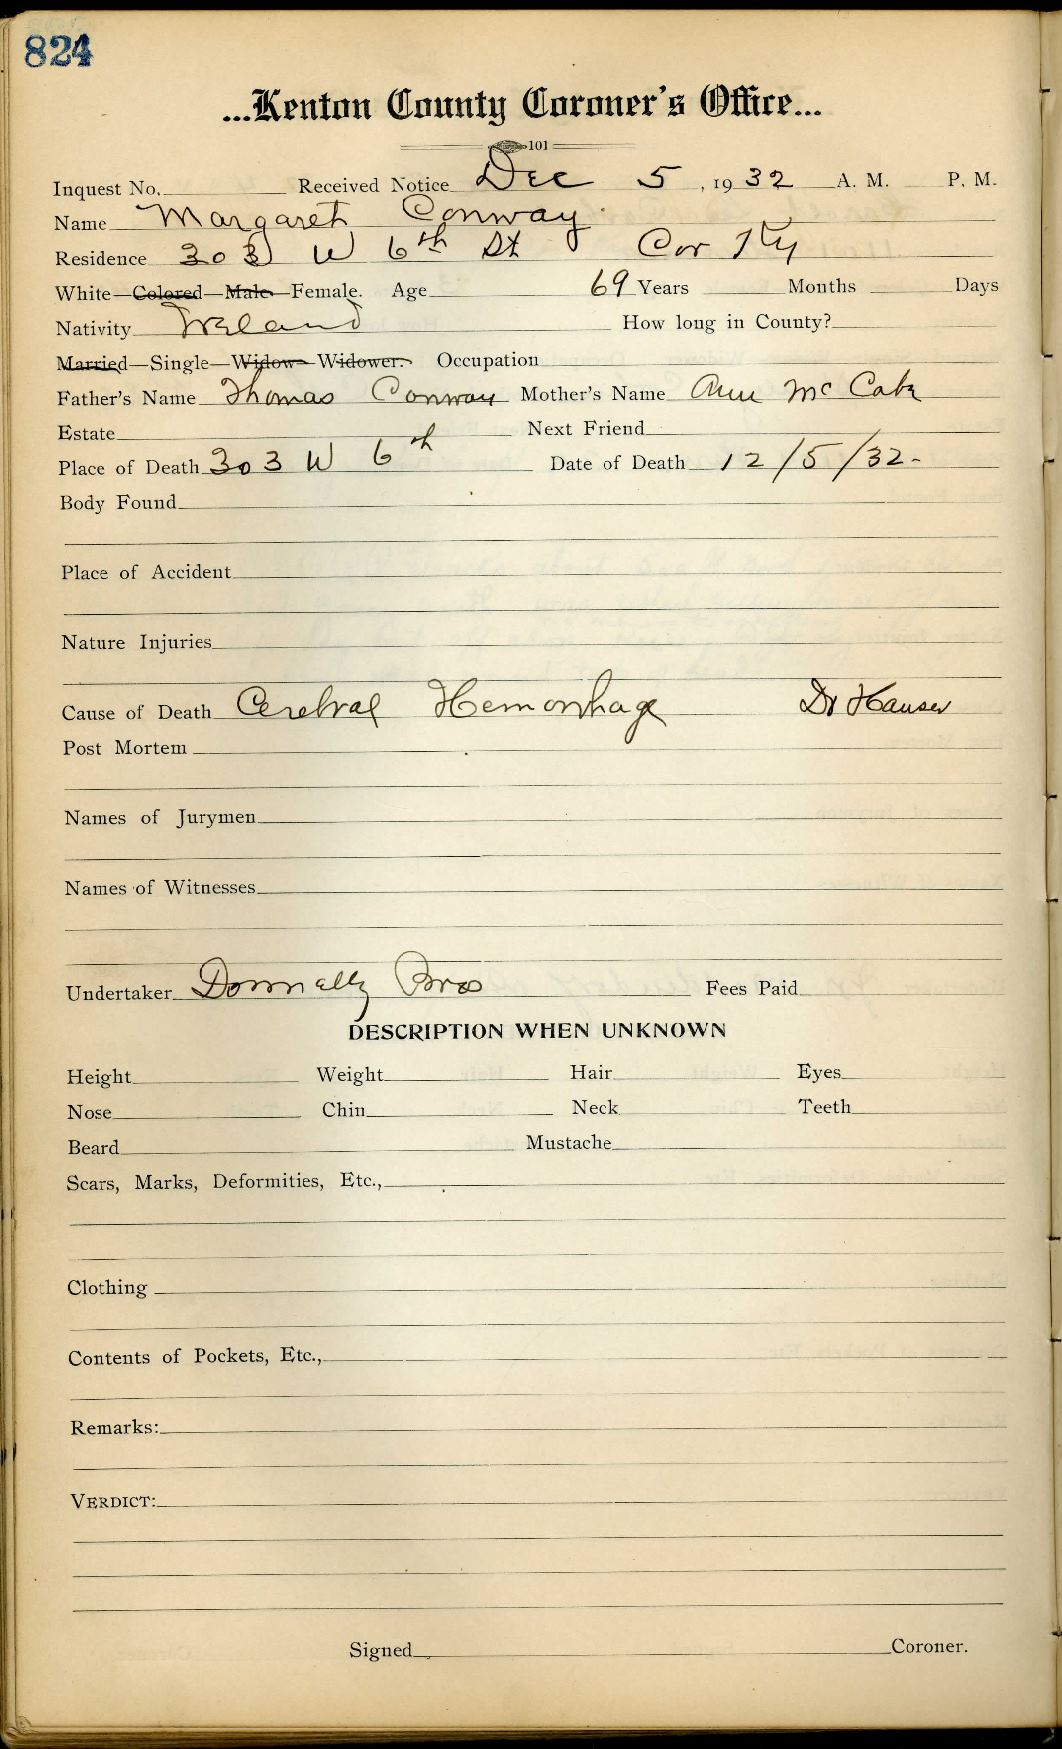 824
...Kenton County Coroner's Office...
101
Inquest No. Received Notice Dec 5, 1932 A. M. P. M.
Name Margaret Conway
Residence 303 W 6th St Cov Ky
White—Colored—Male—Female. Age 69 Years Months Days
Nativity Ireland How long in County?
Married—Single—Widow—Widower. Occupation
Father's Name Thomas Conway Mother's Name Ann McCabe
Estate Next Friend
Place of Death 303 W 6th Date of Death 12/5/32-
Body Found
Place of Accident
Nature Injuries
Cause of Death Cerebral Hemorrhage Dr Hauser
Post Mortem
Names of Jurymen
Names of Witnesses
Undertaker Donnelly Bros Fees Paid
DESCRIPTION WHEN UNKNOWN
Height Weight Hair Eyes
Nose Chin Neck Teeth
Beard Mustache
Scars, Marks, Deformities, Etc.,
Clothing
Contents of Pockets, Etc.,
Remarks:
VERDICT:
Signed Coroner.